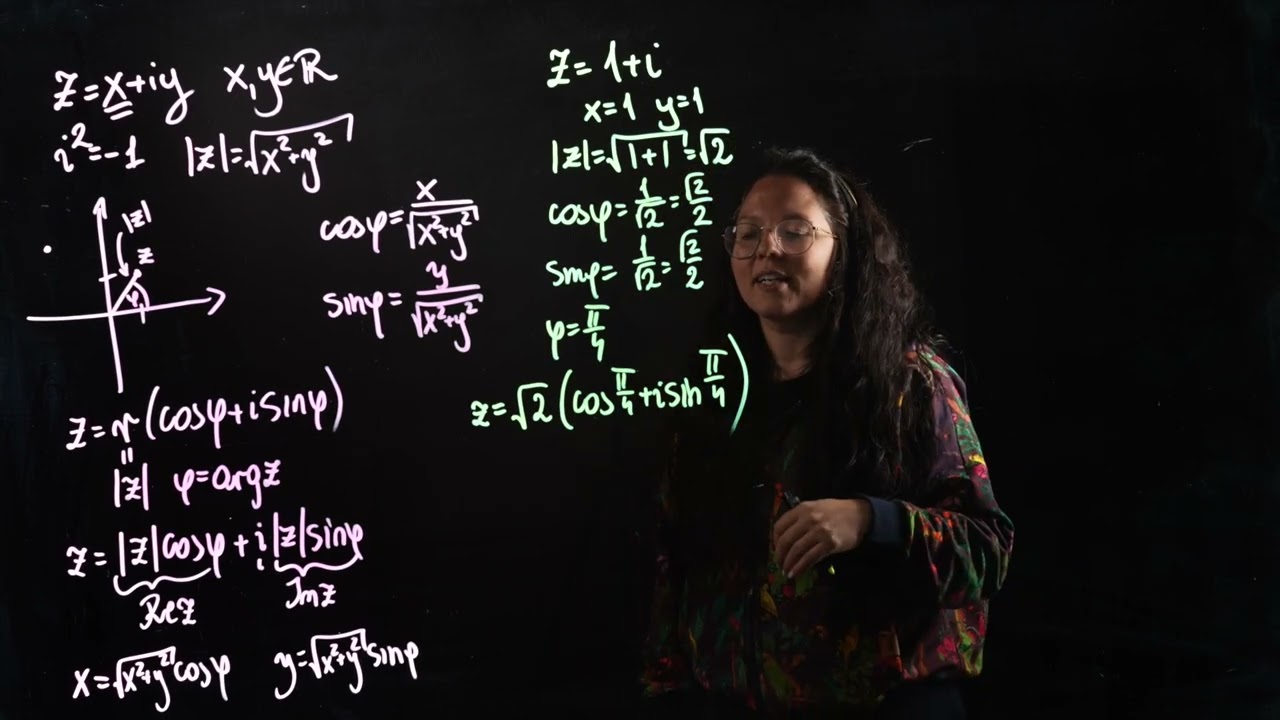 z=x+iy x,y∈ℝ
i²=-1 |z|=√(x²+y²)
|z|
z
φ
cosφ=x/√(x²+y²)
sinφ=y/√(x²+y²)
z=r(cosφ+isinφ)
=
|z| φ=argz
z=|z|cosφ+i|z|sinφ
Rez Imz
x=√(x²+y²)cosφ y=√(x²+y²)sinφ
z=1+i
x=1 y=1
|z|=√(1+1)=√2
cosφ=1/√2=√2/2
sinφ=1/√2=√2/2
φ=π/4
z=√2(cosπ/4+isinπ/4)